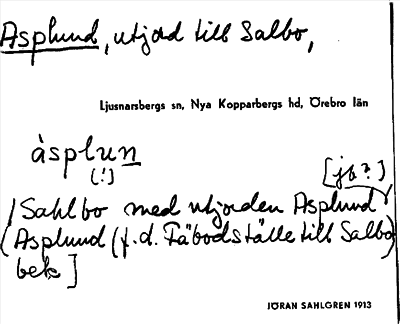 Asplund, utjord till Salbo,
Ljusnarsbergs sn, Nya Kopparbergs hd, Örebro län
àsplun
(!) [jb?]
/Sahlbo med utjorden Asplund
(Asplund (f.d. Fäbodställe till Salbo)
bek]
JÖRAN SAHLGREN 1913